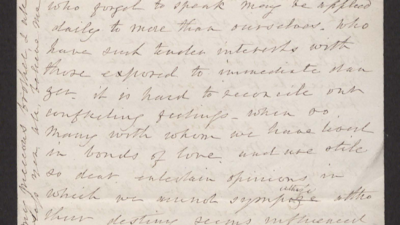 who forgot to speak may be applied
daily to more than ourselves. Who
have such tender interests with
those exposed to immediate dan
ger. it is hard to reconcile our
conflicting feelings. when so
many with whom we have lived
in bonds of love, and are still
so dear entertain opinions in
which we cannot sympa altho
their destiny seems influenced